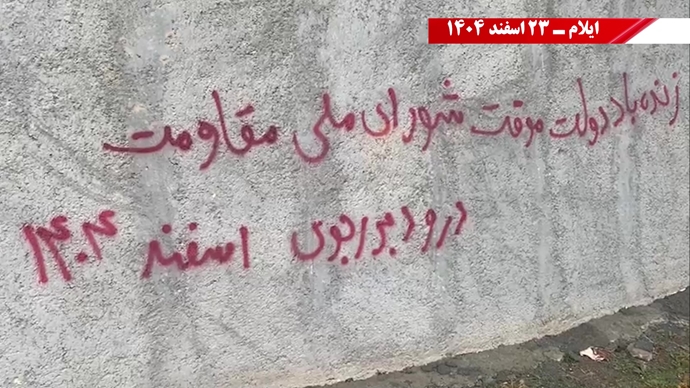 ایلام ــ ۲۳ اسفند ۱۴۰۴
زنده باد دولت موقت شورای ملی مقاومت
درود بر رجوی اسفند ۱۴۰۴